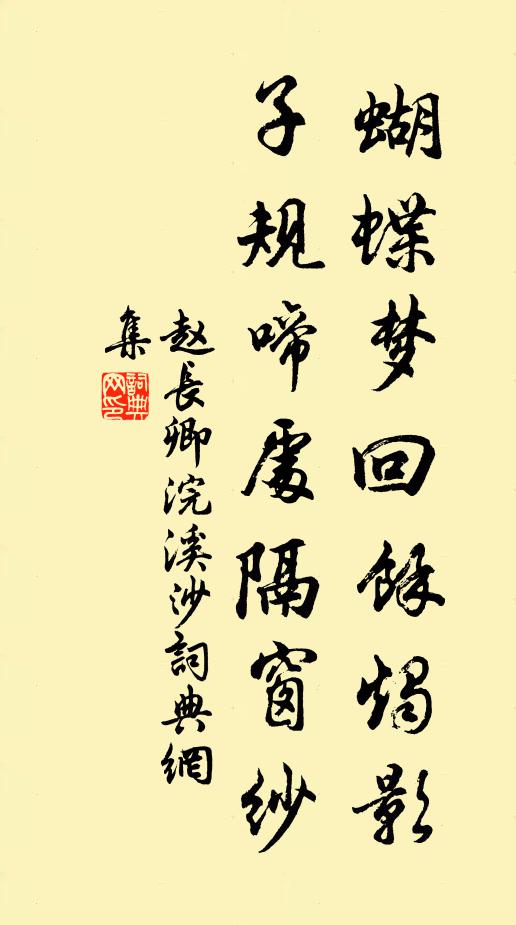 蝴蝶梦回餘烛影
子规啼處隔窗纱
赵長卿浣溪沙詞典網
集
詞典
网印